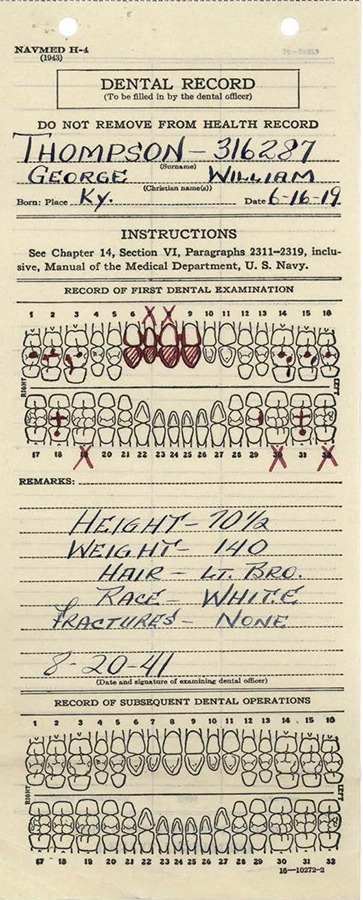 NAVMED H-4
(1943)
DENTAL RECORD
(To be filled in by the dental officer)
DO NOT REMOVE FROM HEALTH RECORD
THOMPSON - 316287
(Surname)
GEORGE WILLIAM
(Christian name(s))
Born: Place Ky. Date 6-16-19
INSTRUCTIONS
See Chapter 14, Section VI, Paragraphs 2311–2319, inclu-
sive, Manual of the Medical Department, U. S. Navy.
RECORD OF FIRST DENTAL EXAMINATION
1 2 3 4 5 6 7 8 9 10 11 12 13 14 15 16
RIGHT LEFT
17 18 19 20 21 22 23 24 25 26 27 28 29 30 31 32
REMARKS:
HEIGHT - 70½
WEIGHT - 140
HAIR - LT. BRO.
RACE - WHITE
FRACTURES - NONE
8-20-41
(Date and signature of examining dental officer)
RECORD OF SUBSEQUENT DENTAL OPERATIONS
1 2 3 4 5 6 7 8 9 10 11 12 13 14 15 16
RIGHT LEFT
17 18 19 20 21 22 23 24 25 26 27 28 29 30 31 32
16—10272-2